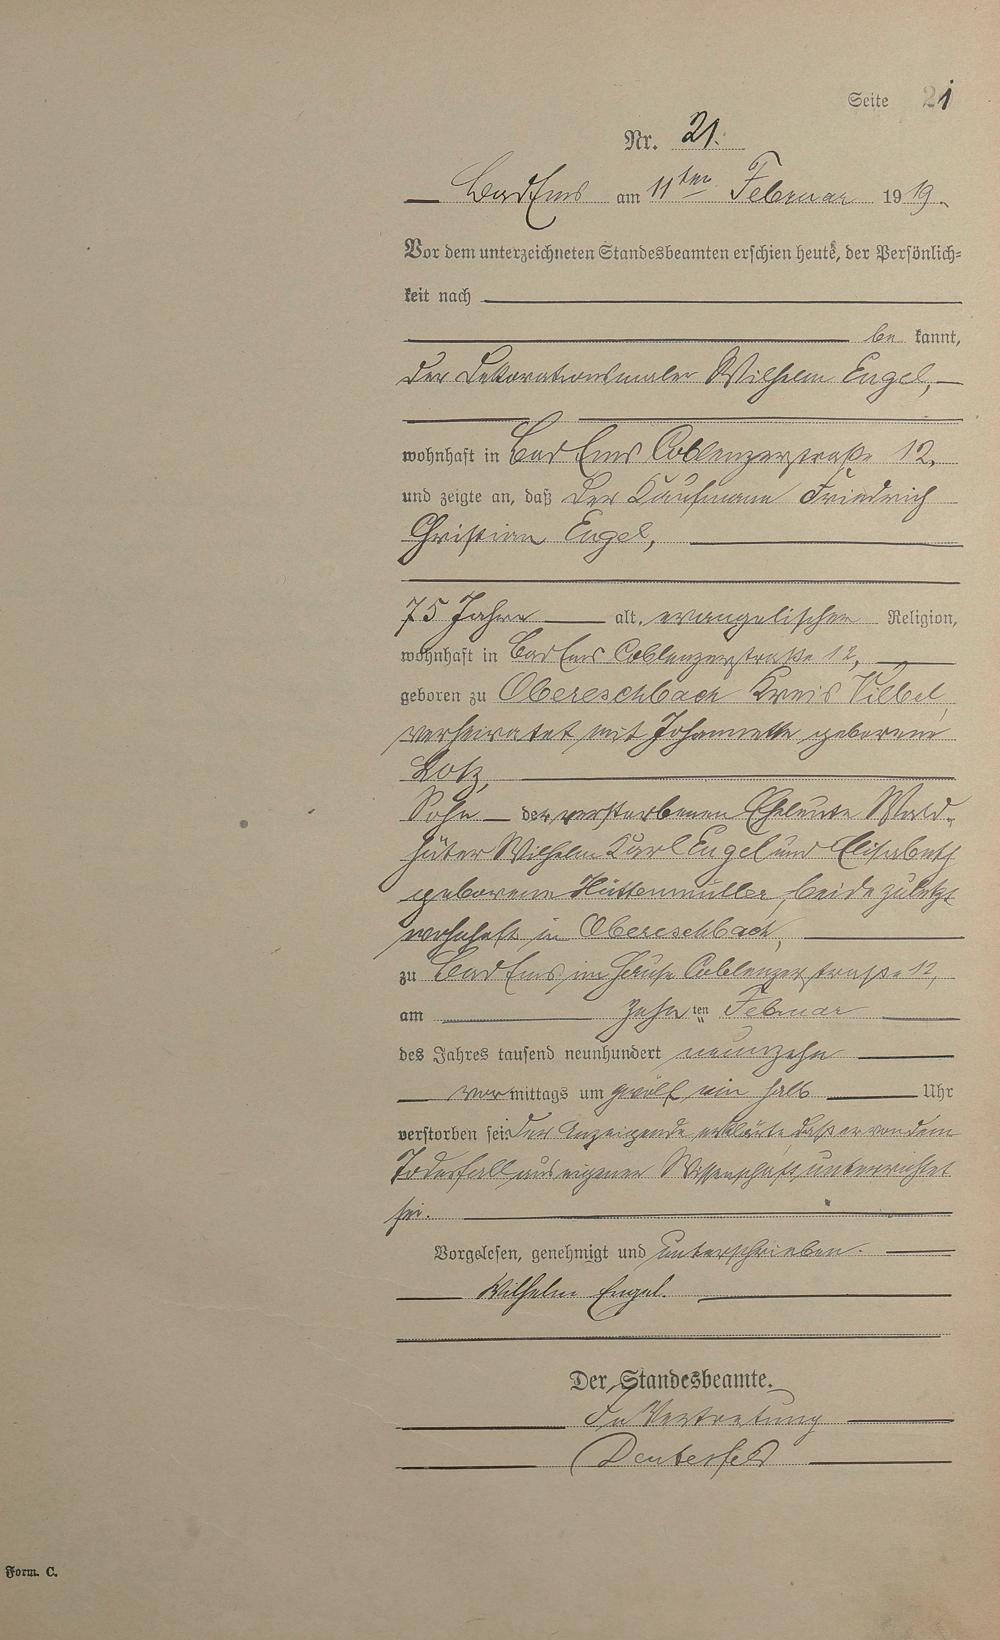 Seite 21
Nr. 21.
Bad Ems am 11ten Februar 1919.
Vor dem unterzeichneten Standesbeamten erschien heute, der Persönlich-
keit nach
be kannt,
der Dekorationsmaler Wilhelm Engel,
wohnhaft in Bad Ems Coblenzerstraße 12,
und zeigte an, daß der Kaufmann Friedrich
Christian Engel,
75 Jahre alt, evangelischer Religion,
wohnhaft in Bad Ems Coblenzerstraße 12,
geboren zu Obereschbach Kreis Vilbel,
verheiratet mit Johannette geborene
Lotz,
Sohn der verstorbenen Eheleute Wald-
hüter Wilhelm Karl Engel und Elisabeth
geborene Hüttenmüller, beide zuletzt
wohnhaft in Obereschbach,
zu Bad Ems im Hause Coblenzerstraße 12,
am zehnten Februar
des Jahres tausend neunhundert neunzehn
vormittags um zwölf ein halb Uhr
verstorben sei. Der Anzeigende erklärte, daß er von dem
Todesfall aus eigener Wissenschaft unterrichtet
sei.
Vorgelesen, genehmigt und unterschrieben.
Wilhelm Engel.
Der Standesbeamte.
In Vertretung
Form. C.